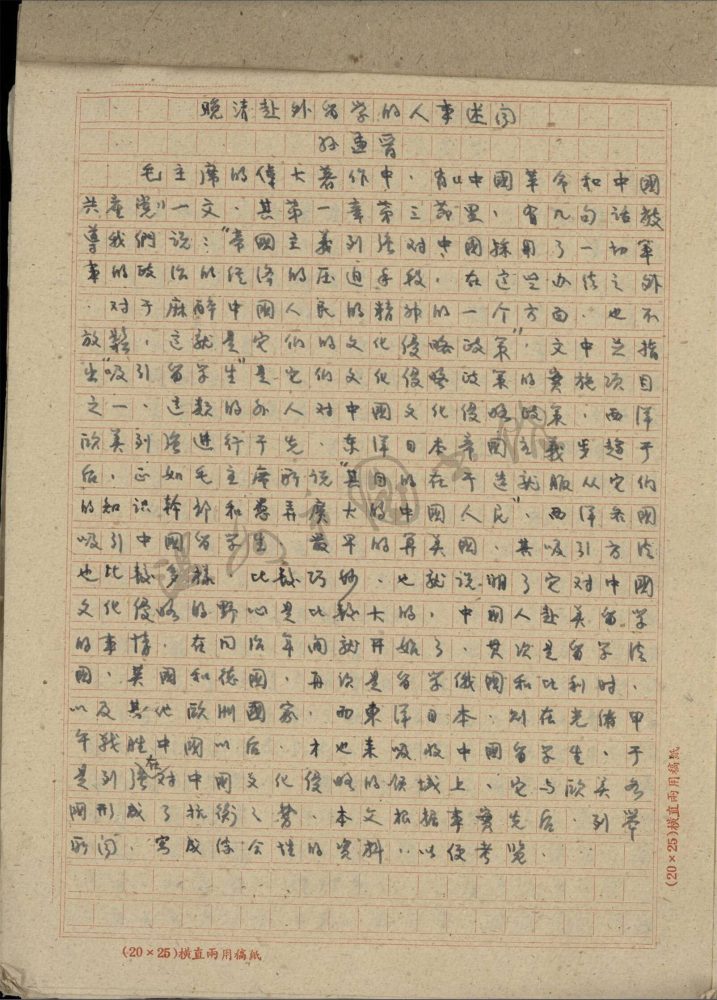 晚清赴外留学的人事述闻
孙
毛主席的偉大著作中，有"中國革命和中國
共產党"一文，其第一章第三節里，有几句話教
導我們說："帝國主義列强对中國採用了一切軍
事的政治的经济的压迫手段，在這些办法之外
，对于麻醉中國人民的精神的一个方面，也不
放鬆，这就是它们的文化侵略政策"，文中並指
出"吸引留学生"是它们文化侵略政策的实施项目
之一，這類的外人对中國文化侵略政策，西洋
欧美列强進行于先，东洋日本帝國主義步趨于
后，正如毛主席所说"其目的在于造就服从它们
的知识幹部和愚弄廣大的中國人民"，西洋各國
吸引中國留学生，最早的算美國，其吸引方法
也比較多樣，比較巧妙，也就说明了它对中國
文化侵略的野心是比較大的，中國人赴美留学
的事情，在同治年间就开始了，其次是留学法
國，英國和德國，再次是留学俄國和比利时，
以及其他欧洲國家，而東洋日本，则在光绪甲
午战胜中國以后，才也来吸收中國留学生，于
是列强在对中國文化侵略的领域上，它与欧美各
國形成了抗衡之势，本文根据事实先后，列举
所闻，寫成综合性的资料，以便考览，
(20×25)横直兩用稿紙
(20×25)横直兩用稿紙